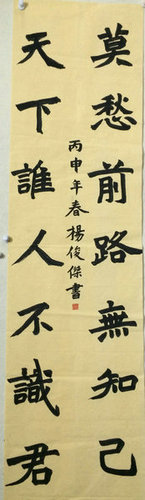 莫愁前路無知己
天下誰人不識君
丙申年春楊俊傑書